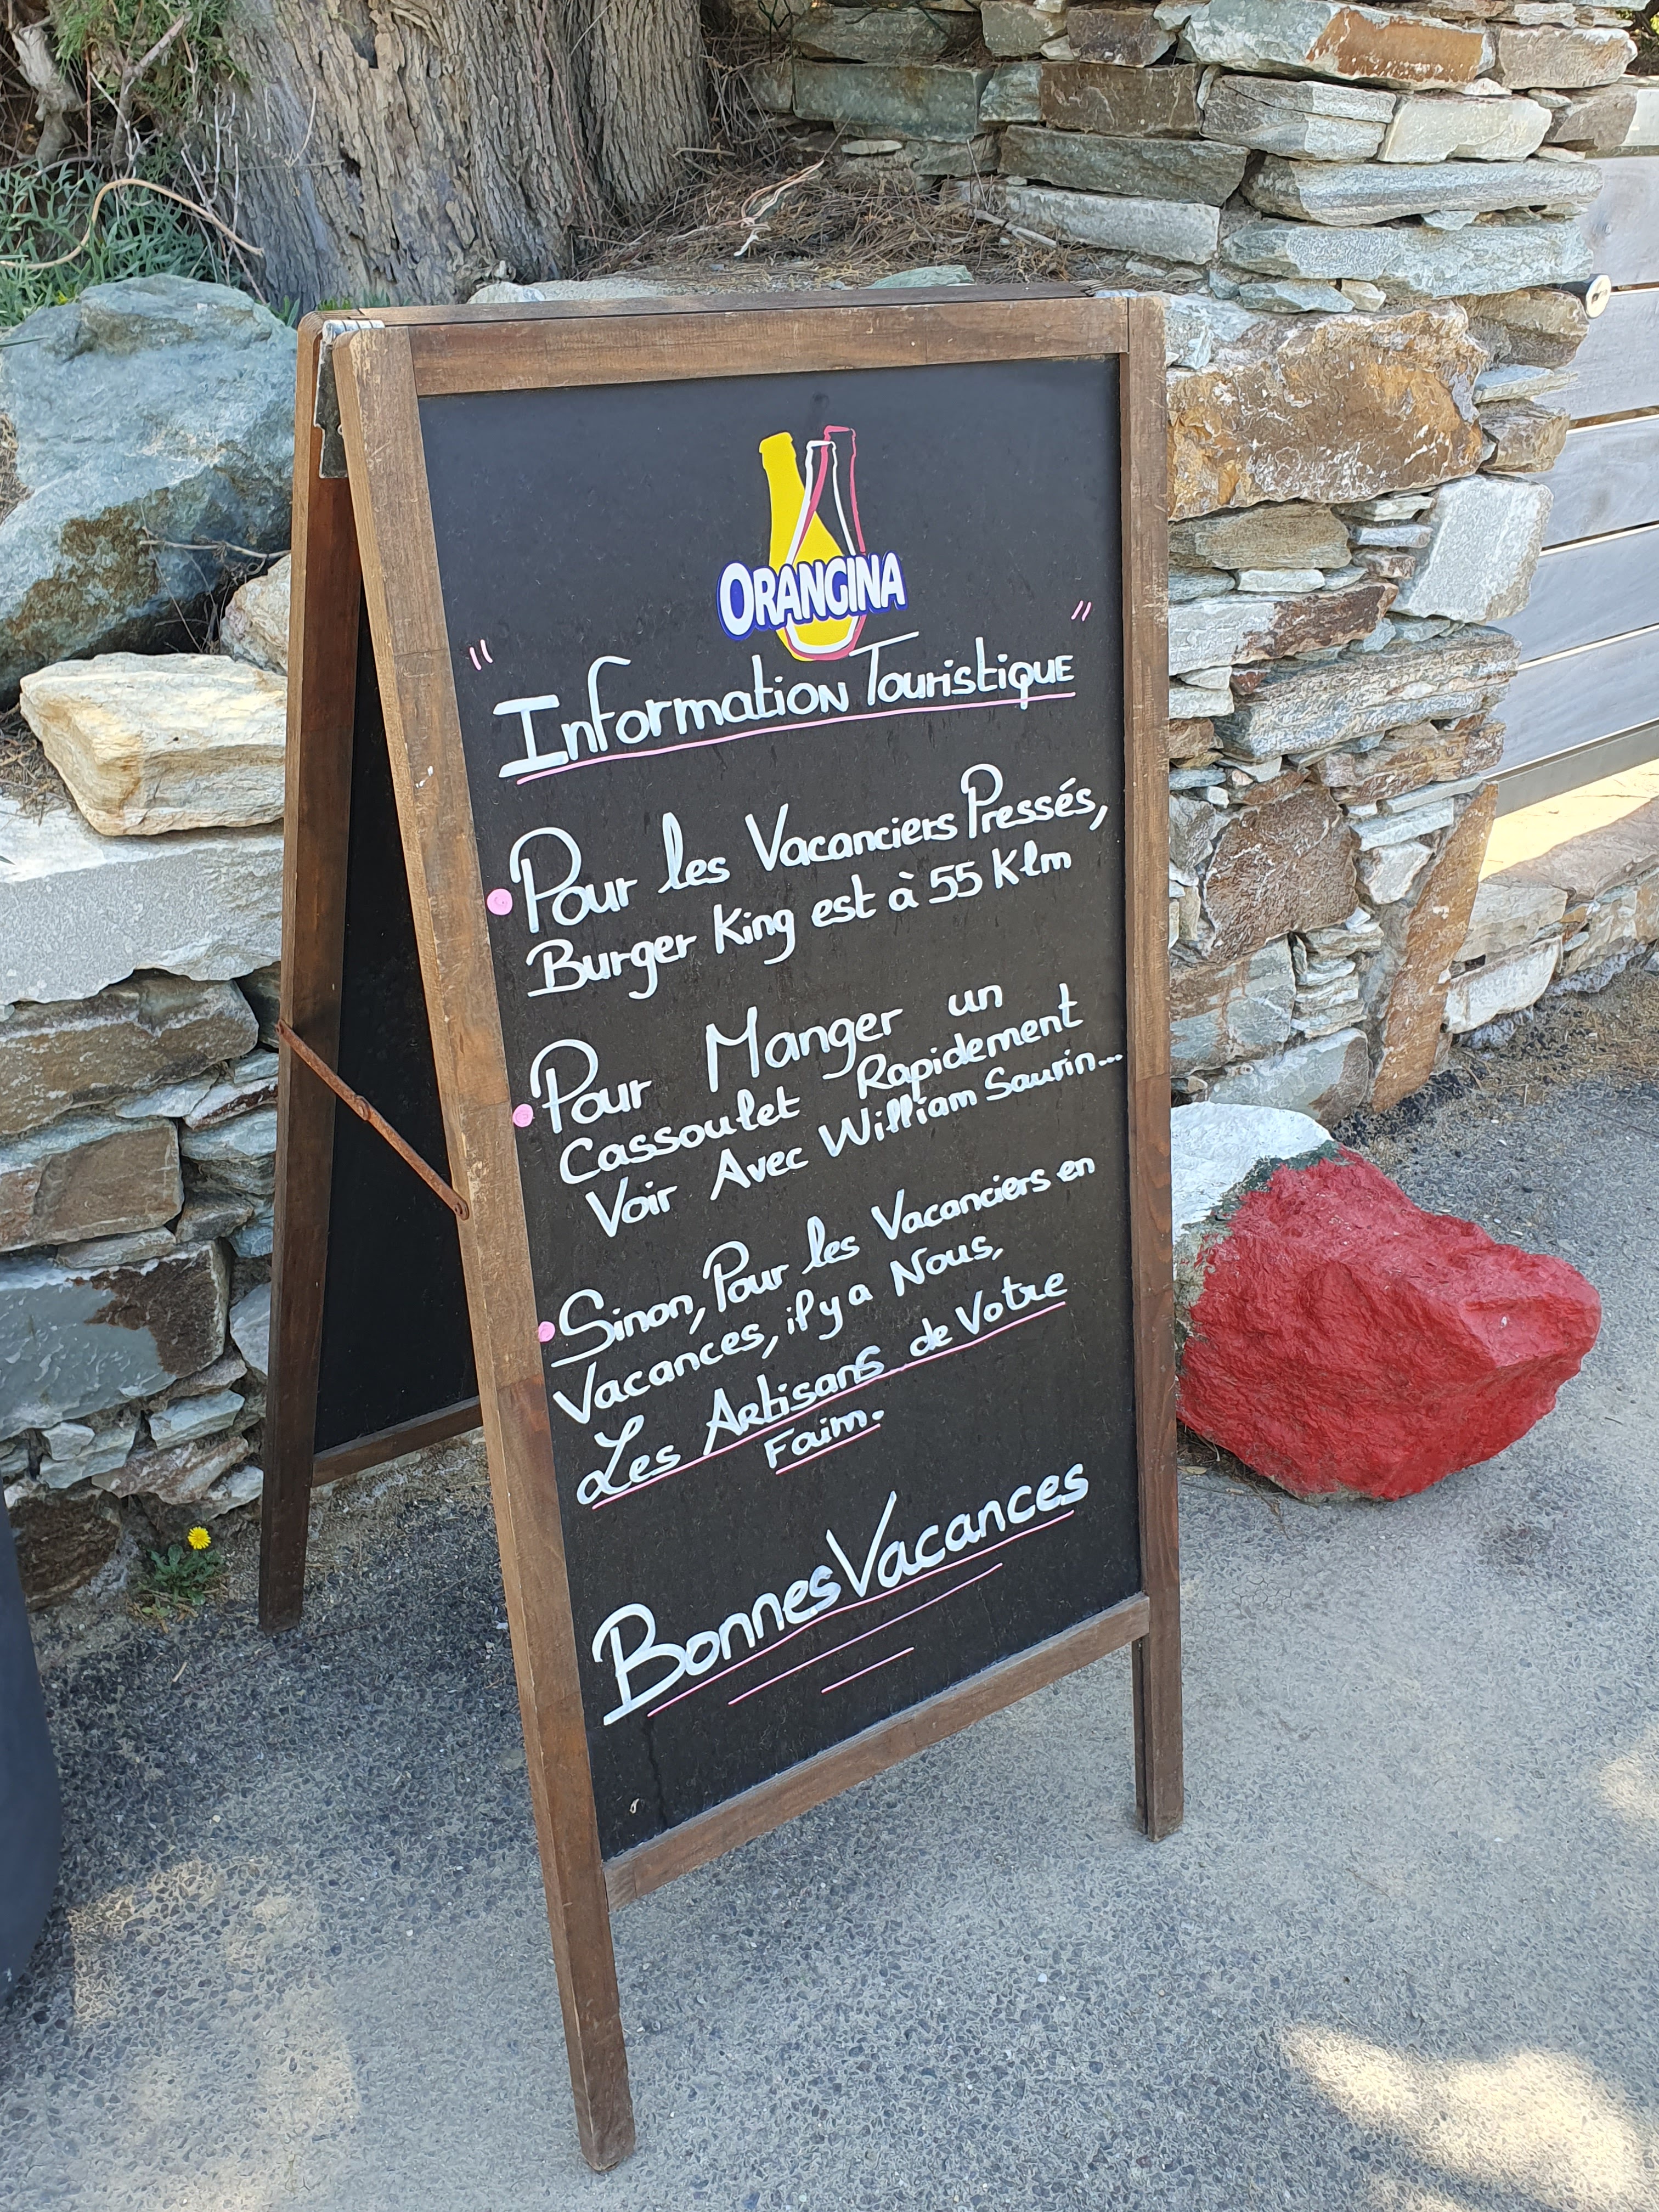 ORANGINA
" Information Touristique "
Pour les Vacanciers Pressés,
Burger King est à 55 Klm
Pour Manger un
Cassoulet Rapidement
Voir Avec William Saurin...
Sinon, Pour les Vacanciers en
Vacances, il y a Nous,
Les Artisans de Votre
Faim.
Bonnes Vacances